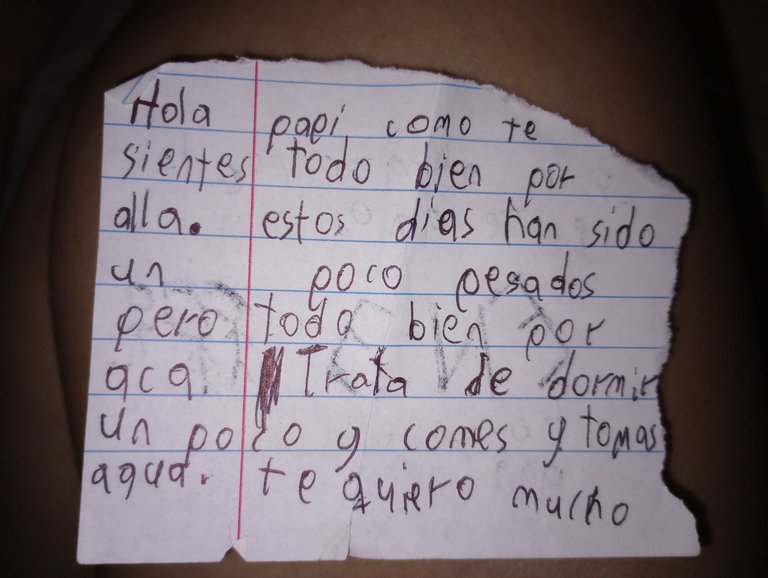 Hola papi como te
sientes todo bien por
alla. estos dias han sido
un poco pesados
pero todo bien por
aca. Trata de dormir
un poco y comes y tomas
agua. te quiero mucho